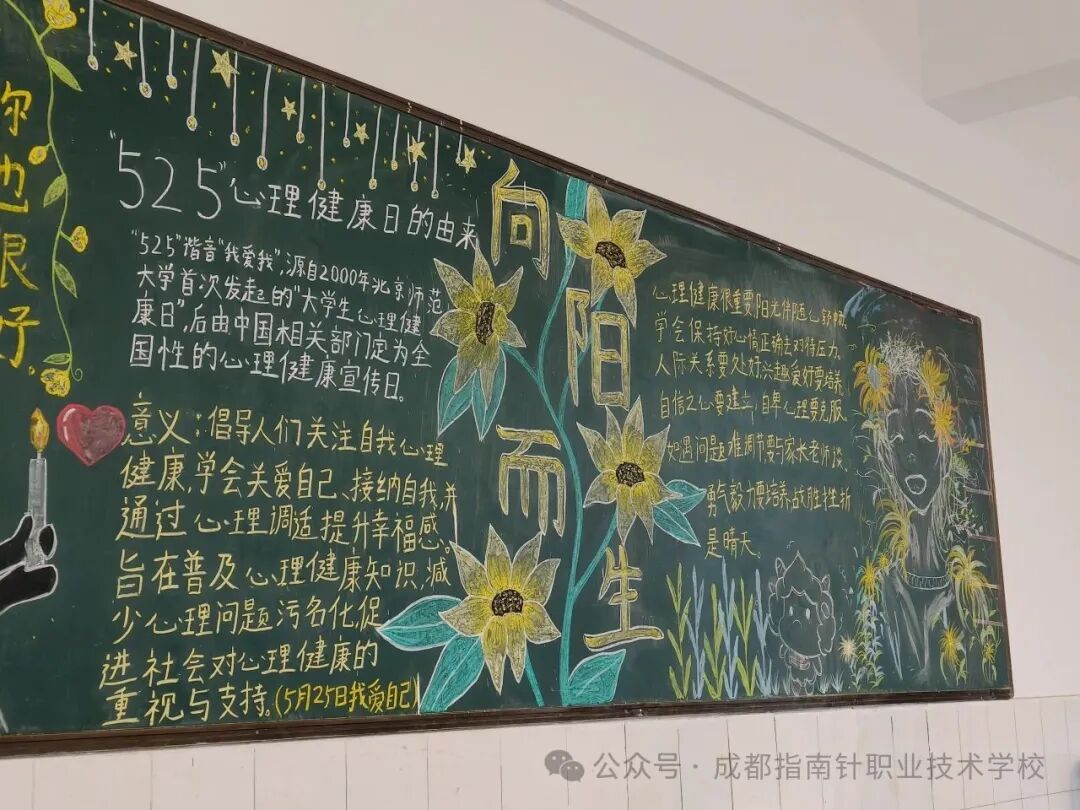 你也很好.
"525"心理健康日的由来
"525"谐音"我爱我",源自2000年北京师范
大学首次发起的"大学生心理健
康日",后由中国相关部门定为全
国性的心理健康宣传日。
意义:倡导人们关注自我心理
健康,学会关爱自己、接纳自我,并
通过心理调适提升幸福感。
旨在普及心理健康知识,减
少心理问题污名化,促
进社会对心理健康的
重视与支持。(5月25日我爱自己)
向阳而生
心理健康很重要阳光伴随
学会保持好心情正确去对待压力.
人际关系要处好兴趣爱好要培养
自信之心要建立,自卑心理要克服
如遇问题难调节要与家长老师谈.
勇气毅力要培养战胜挫折
是晴天。
公众号·成都指南针职业技术学校